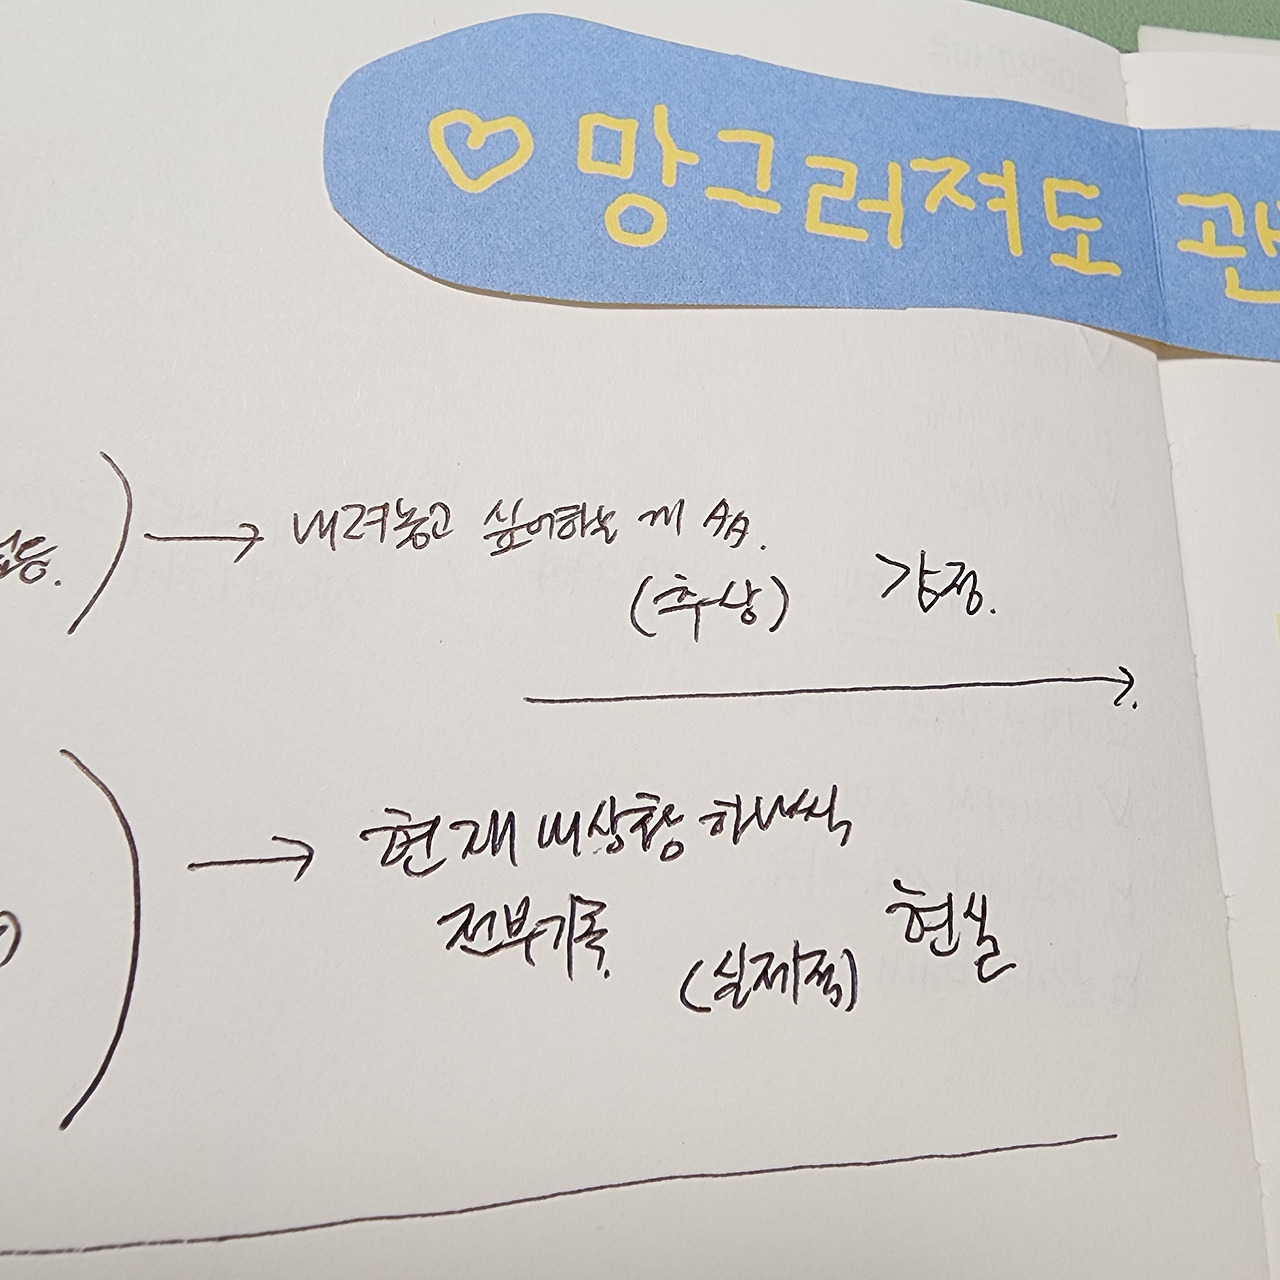 ♡ 망그러져도
내려놓고 싶어하는
(추상) 감정.
현재 내상황 하나씩
전부기록.
(실제적) 현실